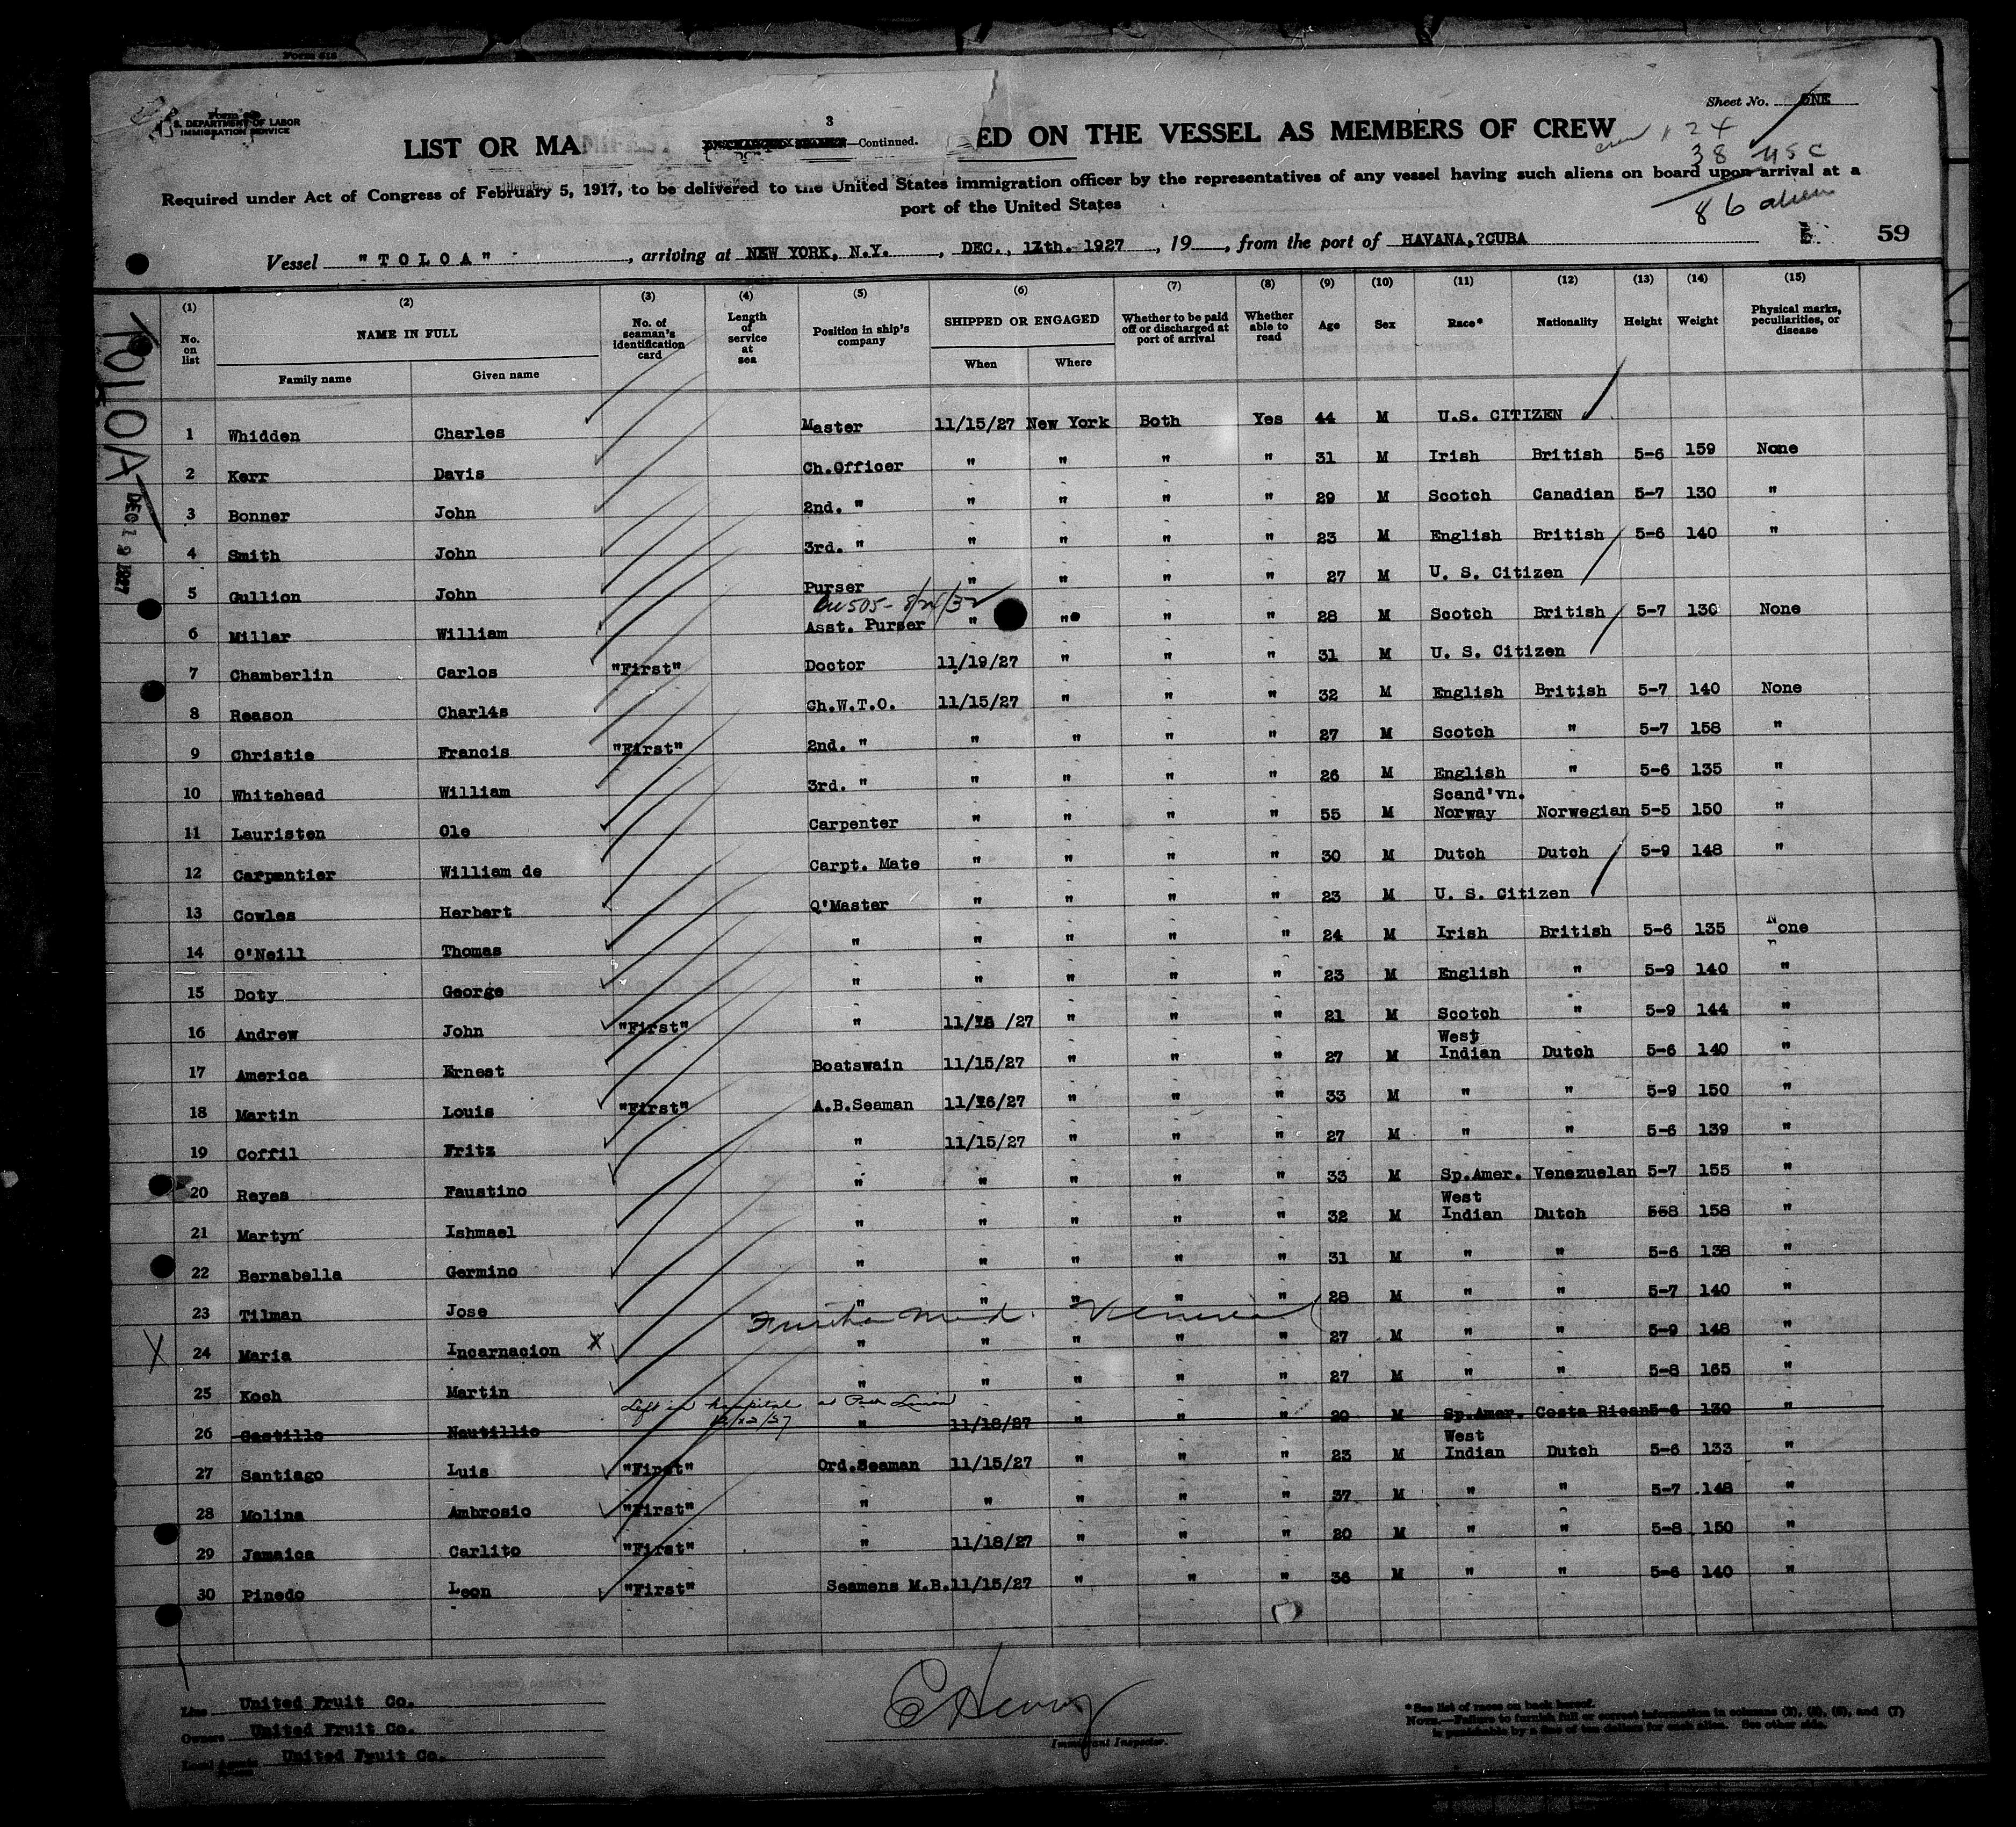 Form 618
S. DEPARTMENT OF LABOR
IMMIGRATION SERVICE
Sheet No. ONE
3
LIST OR MA —Continued. ED ON THE VESSEL AS MEMBERS OF CREW
crew 124
38 USC
86 alien
Required under Act of Congress of February 5, 1917, to be delivered to the United States immigration officer by the representatives of any vessel having such aliens on board upon arrival at a
port of the United States
Vessel "TOLOA", arriving at NEW YORK, N.Y., DEC., 17th. 1927, 19, from the port of HAVANA,?CUBA
59
TOLOA
DEC 19 1927
(1) (2) (3) (4) (5) (6) (7) (8) (9) (10) (11) (12) (13) (14) (15)
No. on list NAME IN FULL Family name Given name No. of seaman's identification card Length of service at sea Position in ship's company SHIPPED OR ENGAGED When Where Whether to be paid off or discharged at port of arrival Whether able to read Age Sex Race* Nationality Height Weight Physical marks, peculiarities, or disease
1 Whidden Charles Master 11/15/27 New York Both Yes 44 M U.S. CITIZEN
2 Kerr Davis Ch.Officer " " " " 31 M Irish British 5-6 159 None
3 Bonner John 2nd. " " " " " 29 M Scotch Canadian 5-7 130 "
4 Smith John 3rd. " " " " " 23 M English British 5-6 140 "
5 Gullion John Purser " " " " 27 M U. S. Citizen
505- 8/24/32
6 Millar William Asst. Purser " " " " 28 M Scotch British 5-7 130 None
7 Chamberlin Carlos "First" Doctor 11/19/27 " " " 31 M U. S. Citizen
8 Reason Charl4s Ch.W.T.O. 11/15/27 " " " 32 M English British 5-7 140 None
9 Christie Francis "First" 2nd. " " " " " 27 M Scotch " 5-7 158 "
10 Whitehead William 3rd. " " " " " 26 M English " 5-6 135 "
11 Lauristen Ole Carpenter " " " " 55 M Scand'vn. Norway Norwegian 5-5 150 "
12 Carpentier William de Carpt. Mate " " " " 30 M Dutch Dutch 5-9 148 "
13 Cowles Herbert Q'Master " " " " 23 M U. S. Citizen
14 O'Neill Thomas " " " " " 24 M Irish British 5-6 135 None
15 Doty George " " " " " 23 M English " 5-9 140 "
16 Andrew John "First" " 11/ /27 " " " 21 M Scotch " 5-9 144 "
17 America Ernest Boatswain 11/15/27 " " " 27 M West Indian Dutch 5-6 140 "
18 Martin Louis "First" A.B.Seaman 11/16/27 " " " 33 M " " 5-9 150 "
19 Coffil Fritz " 11/15/27 " " " 27 M " " 5-6 139 "
20 Reyes Faustino " " " " " 33 M Sp.Amer. Venezuelan 5-7 155 "
21 Martyn Ishmael " " " " " 32 M West Indian Dutch 558 158 "
22 Bernabella Germino " " " " " 31 M " " 5-6 138 "
23 Tilman Jose " " " " " 28 M " " 5-7 140 "
X 24 Maria Incarnacion X " " " " " 27 M " " 5-9 148 "
25 Koch Martin " " " " " 27 M " " 5-8 165 "
Left in hospital at Port Limon
26 Castillo Nautillio " 11/18/27 " " " 20 M Sp.Amer. Costa Rican 5-6 130 "
27 Santiago Luis "First" Ord.Seaman 11/15/27 " " " 23 M West Indian Dutch 5-6 133 "
28 Molina Ambrosio "First" " " " " " 37 M " " 5-7 148 "
29 Jamaica Carlito "First" " 11/18/27 " " " 20 M " " 5-8 150 "
30 Pinedo Leon "First" Seamens M.B. 11/15/27 " " " 36 M " " 5-6 140 "
Line United Fruit Co.
Owners United Fruit Co.
Local Agents United Fruit Co.
Immigrant Inspector.
*See list of races on back hereof.
NOTE.—Failure to furnish full or correct information in columns (2), (5), (6), and (7)
is punishable by a fine of ten dollars for each alien. See other side.